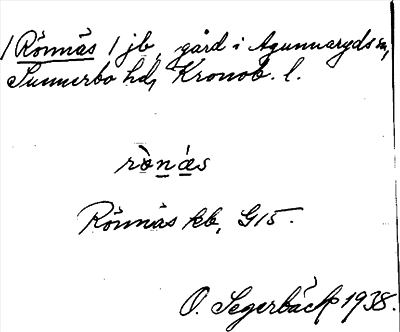 /Rönnäs/ jb, gård i Agunnaryds sn,
Sunnerbo hd, Kronob. l.
rònás
Rönnäs kb, G15.
O. Segerbäck 1938.